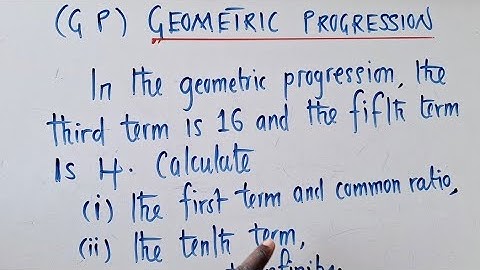 (GP) GEOMETRIC PROGRESSION
In the geometric progression, the
third term is 16 and the fifth term
is 4. Calculate
(i) the first term and common ratio,
(ii) the tenth term,
to infinity.